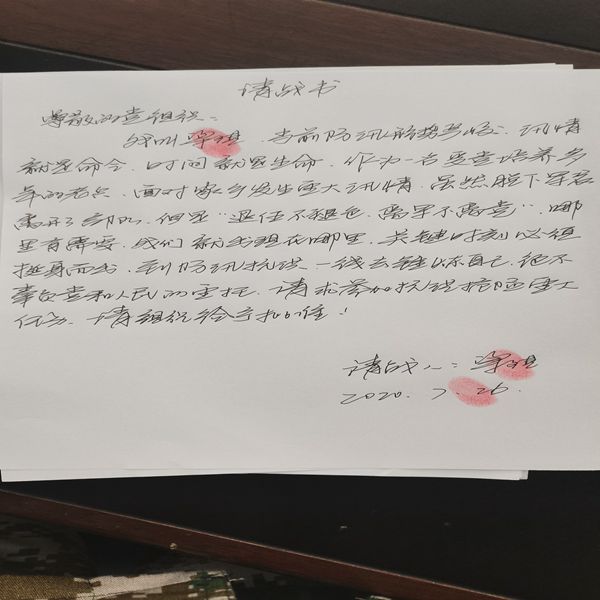 请战书
尊敬的党组织：
我叫 当前防汛形势严峻，汛情
就是命令，时间就是生命，作为一名受党培养多
年的老兵，面对家乡发生重大汛情，虽然脱下军装
离开了部队，但是“退伍不褪色，离军不离党”，哪
里有需要，我们就出现在哪里，关键时刻必须
挺身而出，到防汛抗洪一线去锤炼自己，绝不
辜负党和人民的重托，请求参加抗洪抢险
任务，请组织给予批准！
请战人：
2020.7.26.